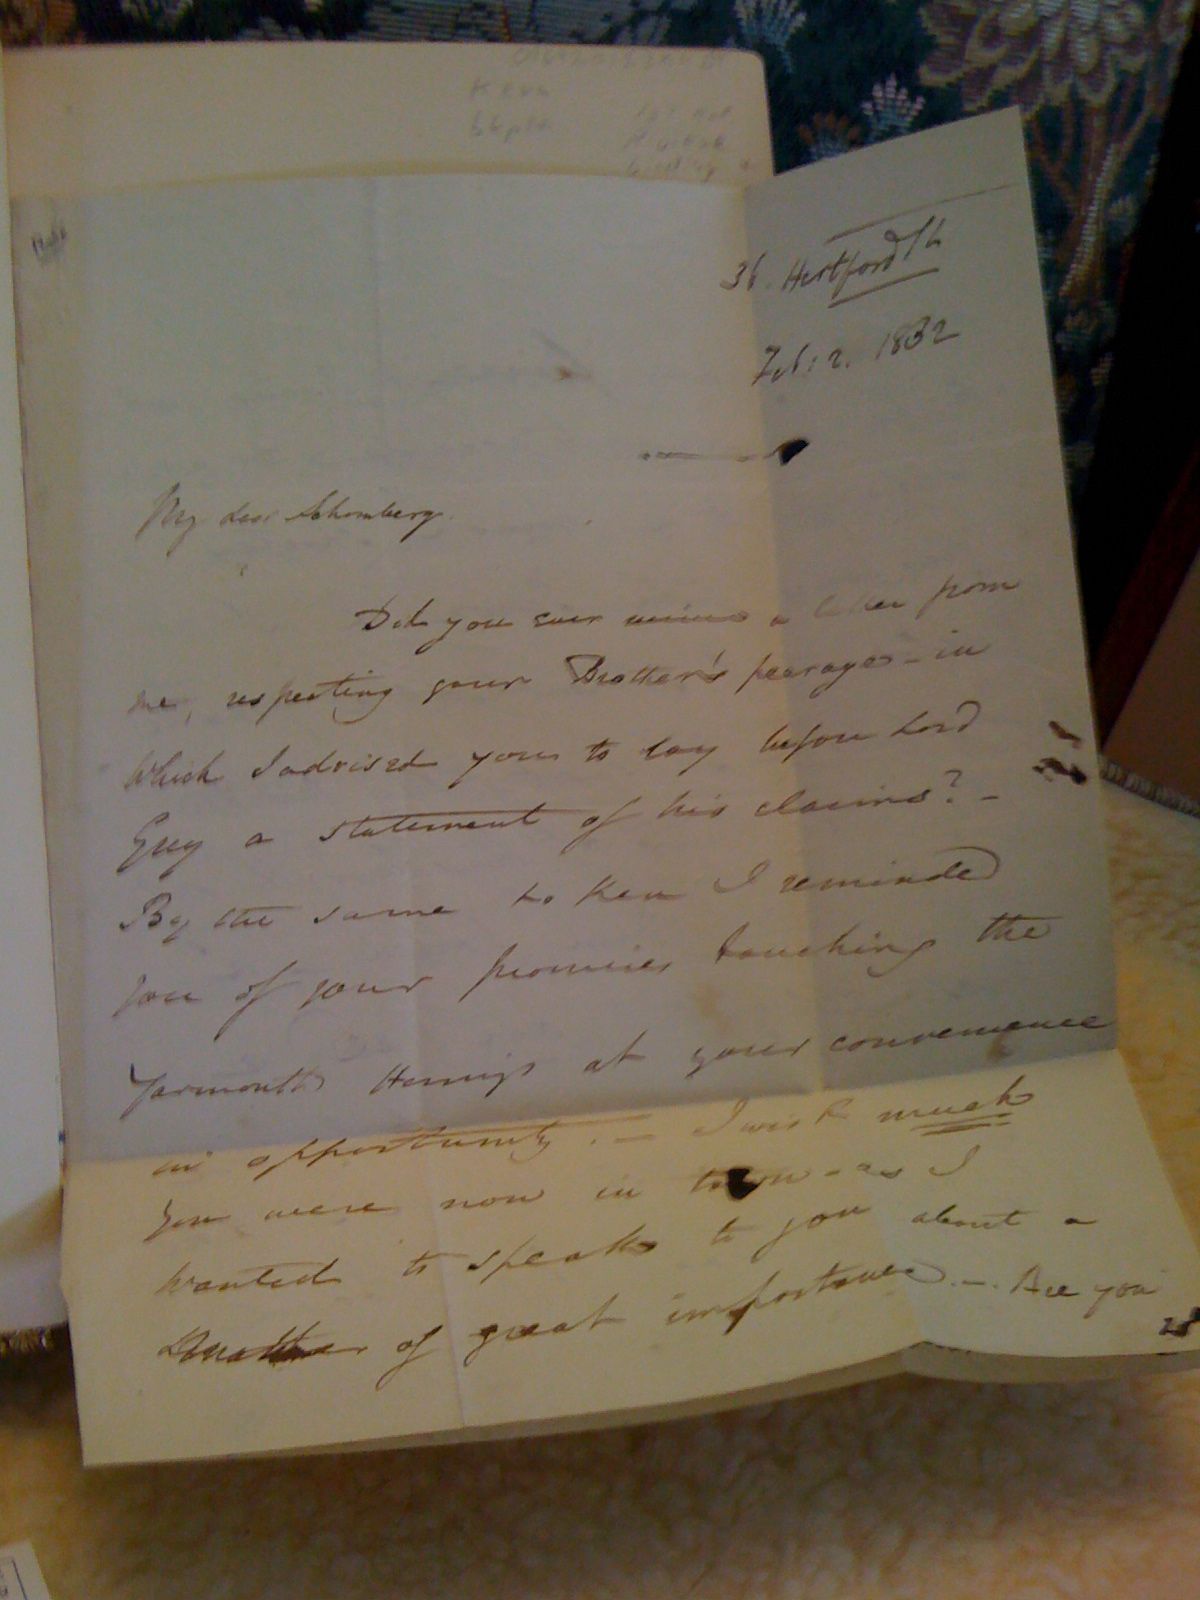 36. Hertford St
Feb: 2. 1832
My dear Schomberg.
Did you ever a letter from
me, respecting your Brother's peerage - in
which I advised you to lay before Lord
Grey a statement of his claims? -
By the same token I reminded
you of your promises touching the
Yarmouth Herrings at your convenience
in opportunity. - I wish much
you were now in town - as I
wanted to speak to you about a
matter of great importance. - Are you